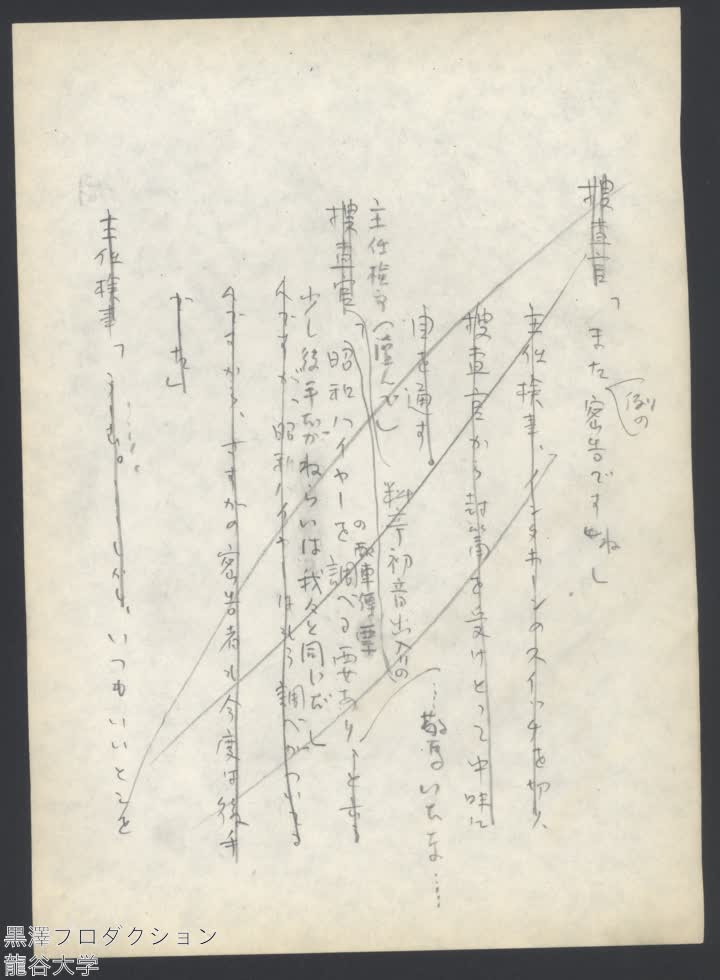 捜査官「また例の密告ですね」
主任検事、インタホーンのスイッチを切り、
捜査官から封筒を受けとって中味に
目を通す。
……驚いたな……
主任検事(読んで)「料亭初音出入りの
捜査官「昭和ハイヤーの配車伝票を調べる要あり、とある
少し後手だがねらいは我々と同じだ」
んですが、昭和ハイヤーはもう調べがついてる
んですから、さすがの密告者も今度は後手
かな」
主任検事「うむ。しかし、いつもいいとこを
黒澤プロダクション
龍谷大学